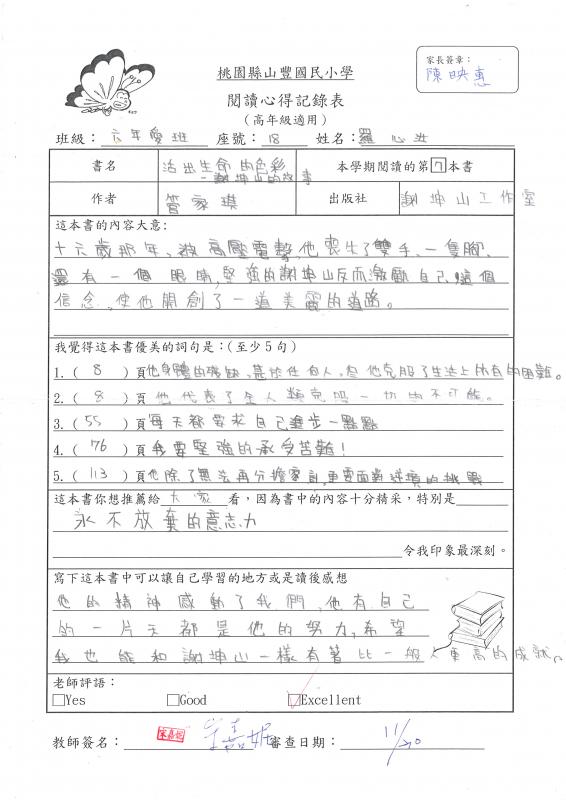 桃園縣山豐國民小學
家長簽章：
陳映惠
閱讀心得記錄表
(高年級適用)
班級：六年愛班 座號：18 姓名：羅心汝
書名 活出生命的色彩 本學期閱讀的第7本書
-謝坤山的故事
作者 管家琪 出版社 謝坤山工作室
這本書的內容大意：
十六歲那年，被高壓電擊，他喪失了雙手、一隻腳、
還有一個眼睛，堅強的謝坤山反而激勵自己，這個
信念，使他開創了一道美麗的道路。
我覺得這本書優美的詞句是：(至少5句)
1.(8)頁他身體的殘缺，甚於任何人，但他克服了生活上所有的困難。
2.(8)頁他代表了全人類克服一切的不可能。
3.(55)頁每天都要求自己進步一點點
4.(76)頁我要堅強的承受苦難！
5.(113)頁他除了無法再分擔家計，更要面對逆境的挑戰
這本書你想推薦給大家看，因為書中的內容十分精采，特別是
永不放棄的意志力
令我印象最深刻。
寫下這本書中可以讓自己學習的地方或是讀後感想
他的精神感動了我們，他有自己
的一片天都是他的努力，希望
我也能和謝坤山一樣有著比一般人更高的成就。
老師評語：
□Yes □Good ☑Excellent
教師簽名： 審查日期：11/20